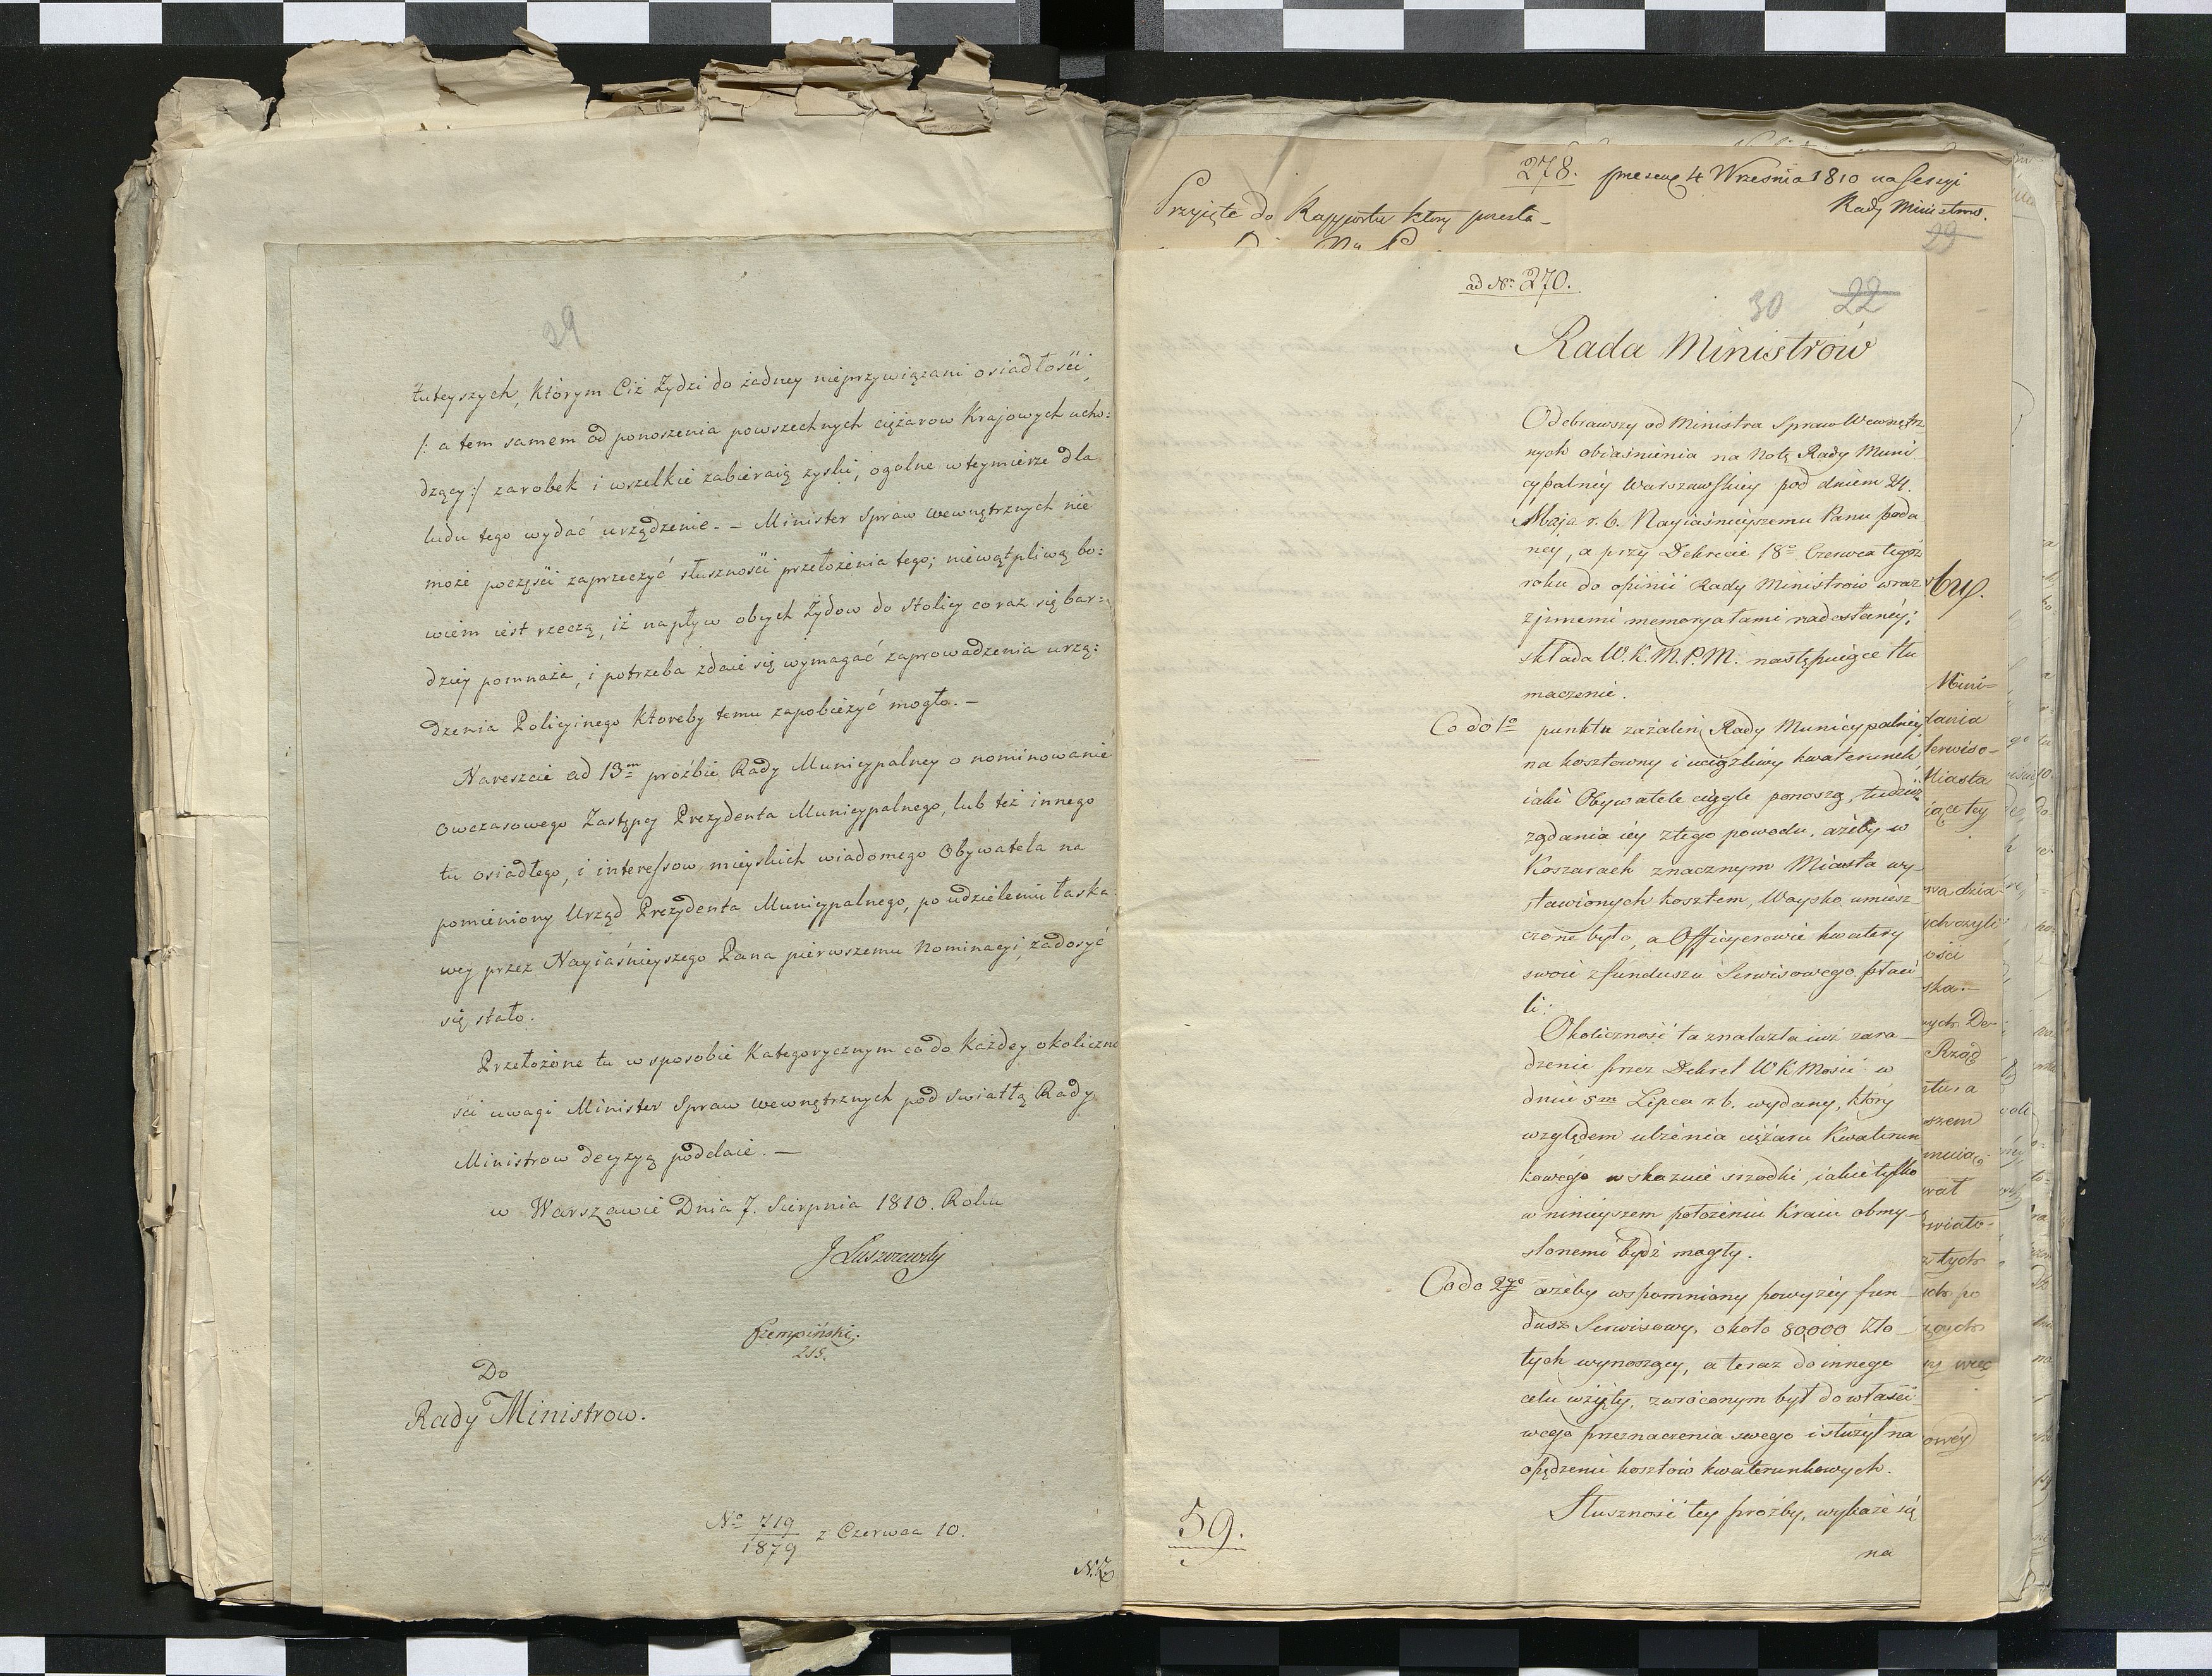 29
tuteyszych, którym Ciż Żydzi do żadney nieprzywiązani osiadłości,
/: a tem samem od ponoszenia powszechnych ciężarow Krajowych ucho:
dzący :/ zarobek i wszelkie zabieraią zyski, ogolne w teymierze dla
ludu tego wydać urządzenie. – Minister Spraw Wewnętrznych nie
może poczęści zaprzeczyć słuszności przełożenia tego; niewątpliwą bo:
wiem iest rzeczą, iż napływ obcych Żydow do Stolicy coraz się bar:
dziey pomnaża, i potrzeba zdaie się wymagać zaprowadzenia urzą:
dzenia Policyinego ktoreby temu zapobieżyć mogło. –
Nareszcie ad 13m prożbie Rady Municypalney o nominowanie
owczasowego Zastępcy Prezydenta Municypalnego, lub też innego
tu osiadłego, i interessow mieyskich wiadomego Obywatela na
pomieniony Urząd Prezydenta Municypalnego, po udzieleniu łaska
wey przez Nayiaśnieyszego Pana pierwszemu Nominacyi, zadosyć
się stało.
Przełożone tu w sposobie Kategorycznym co do każdey okoliczno
ści uwagi Minister Spraw Wewnętrznych pod swiatłą Rady
Ministrow decyzyą poddaie. –
w Warszawie Dnia 7. Sierpnia 1810. Roku
J Łuszczewski
Rempiński.
215.
Do
Rady Ministrow.
No 719/1879 z Czerwca 10.
278. praesent 4 Września 1810 na sessyi
Rady Ministrow.
Przyięte do Rapportu ktory przesła–
29
ad Nm 270.
30 22
Rada Ministrów
Odebrawszy od Ministra Spraw Wewnętrz
nych obiaśnienia na Notę Rady Muni
cypalnéy Warszawskiey pod dniem 24.
Maja r. b. Nayiaśnieyszemu Panu poda
néy, a przy Dekrecie 18o Czerwca tegoż
roku do opinii Rady Ministrów wraz
z innemi memoryałami nadesłanéy;
składa W. K. M. P. M. następuiące tłu
maczenie.
Co do 1o punktu zażaleń Rady Municypalnéy
na kosztowny i uciążliwy kwaterunek,
iaki Obywatele ciągle ponoszą, tudzież
żądania iéy z tego powodu, ażeby w
Koszarach znacznym Miasta wy–
stawionych kosztem, Woysko umiesz–
czone było, a Officyerowie kwatery
swoie z funduszu Serwisowego płaci
li:
Okoliczność ta znalazła iuż zara–
dzenie przez Dekret W K Mości w
dniu 5m Lipca r. b. wydany, który
względem ulżenia ciężaru Kwaterun
kowego wskazuie srzodki, iakie tylko
w ninieyszem położeniu kraiu obmy–
ślonemi bydź mogły.
Co do 2go ażeby wspomniany powyżéy fun–
dusz Serwisowy, około 80,000 Zło–
tych wynoszący, a teraz do innego
celu wzięty, zwróconym był do właści
wego przeznaczenia swego i służył na
opędzenie kosztów kwaterunkowych.
Słuszność tey prożby, wykaże się
na
59.